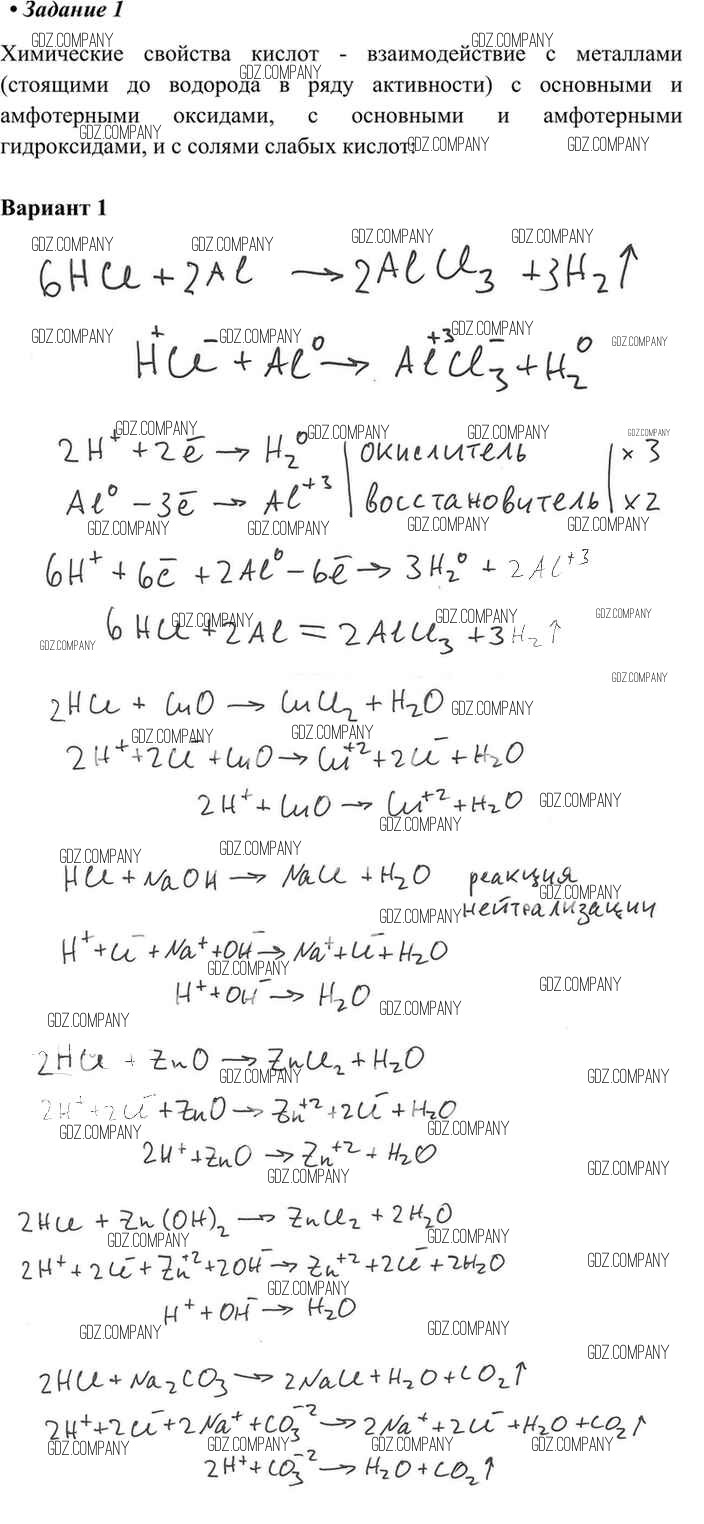 • Задание 1
Химические свойства кислот - взаимодействие с металлами
(стоящими до водорода в ряду активности) с основными и
амфотерными оксидами, с основными и амфотерными
гидроксидами, и с солями слабых кислот.
Вариант 1
6HCl + 2Al → 2AlCl₃ + 3H₂↑
H⁺Cl⁻ + Al⁰ → Al⁺³Cl₃⁻ + H₂⁰
2H⁺ + 2ē → H₂⁰ | окислитель | ×3
Al⁰ − 3ē → Al⁺³ | восстановитель | ×2
6H⁺ + 6ē + 2Al⁰ − 6ē → 3H₂⁰ + 2Al⁺³
6HCl + 2Al = 2AlCl₃ + 3H₂↑
2HCl + CuO → CuCl₂ + H₂O
2H⁺ + 2Cl⁻ + CuO → Cu⁺² + 2Cl⁻ + H₂O
2H⁺ + CuO → Cu⁺² + H₂O
HCl + NaOH → NaCl + H₂O реакция
нейтрализации
H⁺ + Cl⁻ + Na⁺ + OH⁻ → Na⁺ + Cl⁻ + H₂O
H⁺ + OH⁻ → H₂O
2HCl + ZnO → ZnCl₂ + H₂O
2H⁺ + 2Cl⁻ + ZnO → Zn⁺² + 2Cl⁻ + H₂O
2H⁺ + ZnO → Zn⁺² + H₂O
2HCl + Zn(OH)₂ → ZnCl₂ + 2H₂O
2H⁺ + 2Cl⁻ + Zn⁺² + 2OH⁻ → Zn⁺² + 2Cl⁻ + 2H₂O
H⁺ + OH⁻ → H₂O
2HCl + Na₂CO₃ → 2NaCl + H₂O + CO₂↑
2H⁺ + 2Cl⁻ + 2Na⁺ + CO₃⁻² → 2Na⁺ + 2Cl⁻ + H₂O + CO₂↑
2H⁺ + CO₃⁻² → H₂O + CO₂↑
GDZ.COMPANY